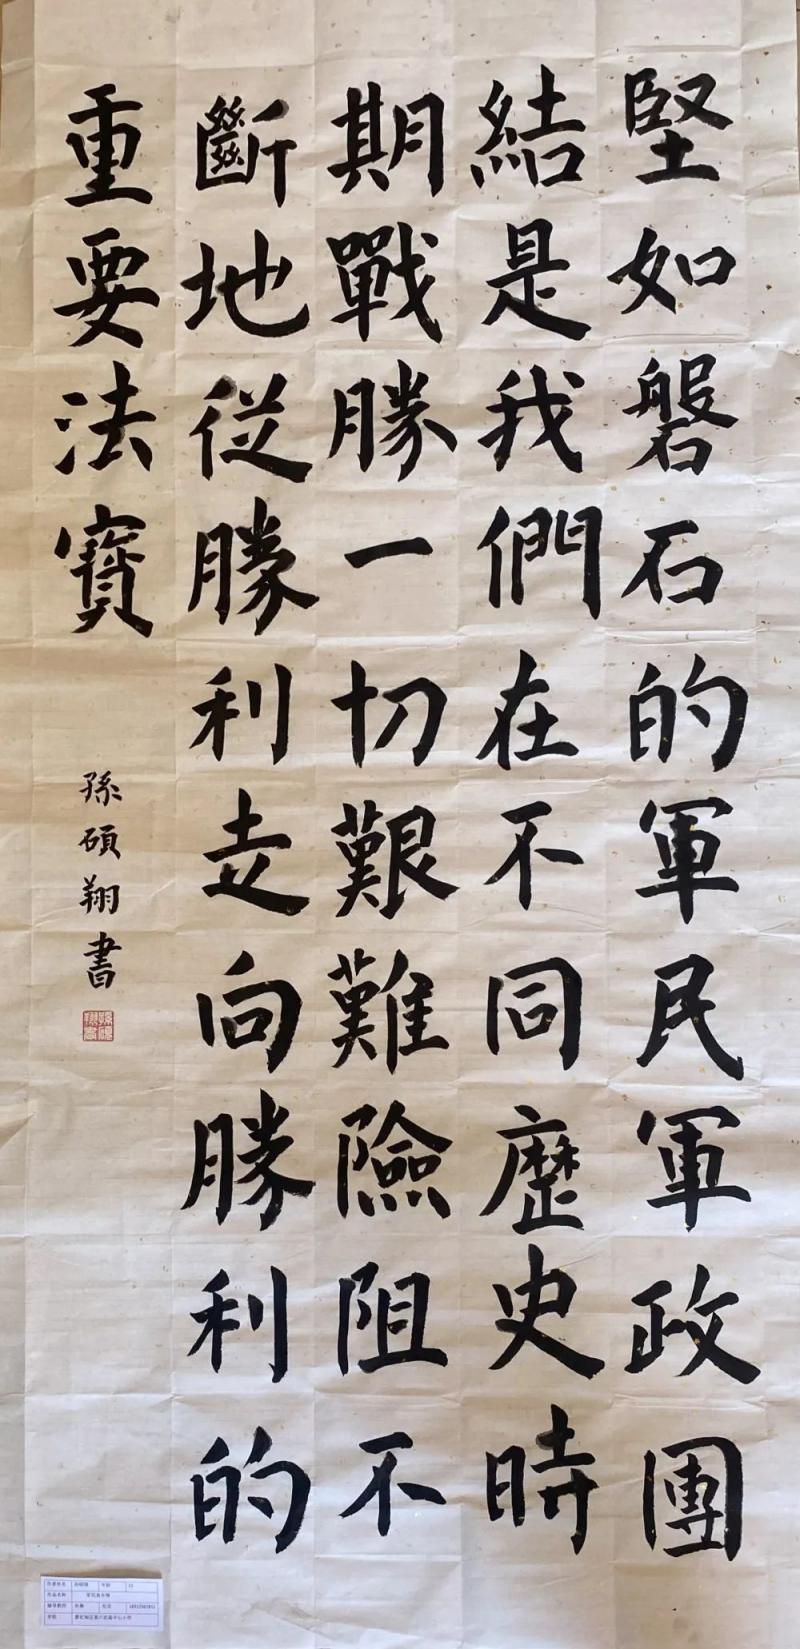 堅如磐石的軍民軍政團
結是我們在不同歷史時
期戰勝一切艱難險阻不
斷地從勝利走向勝利的
重要法寶
孫碩翔書